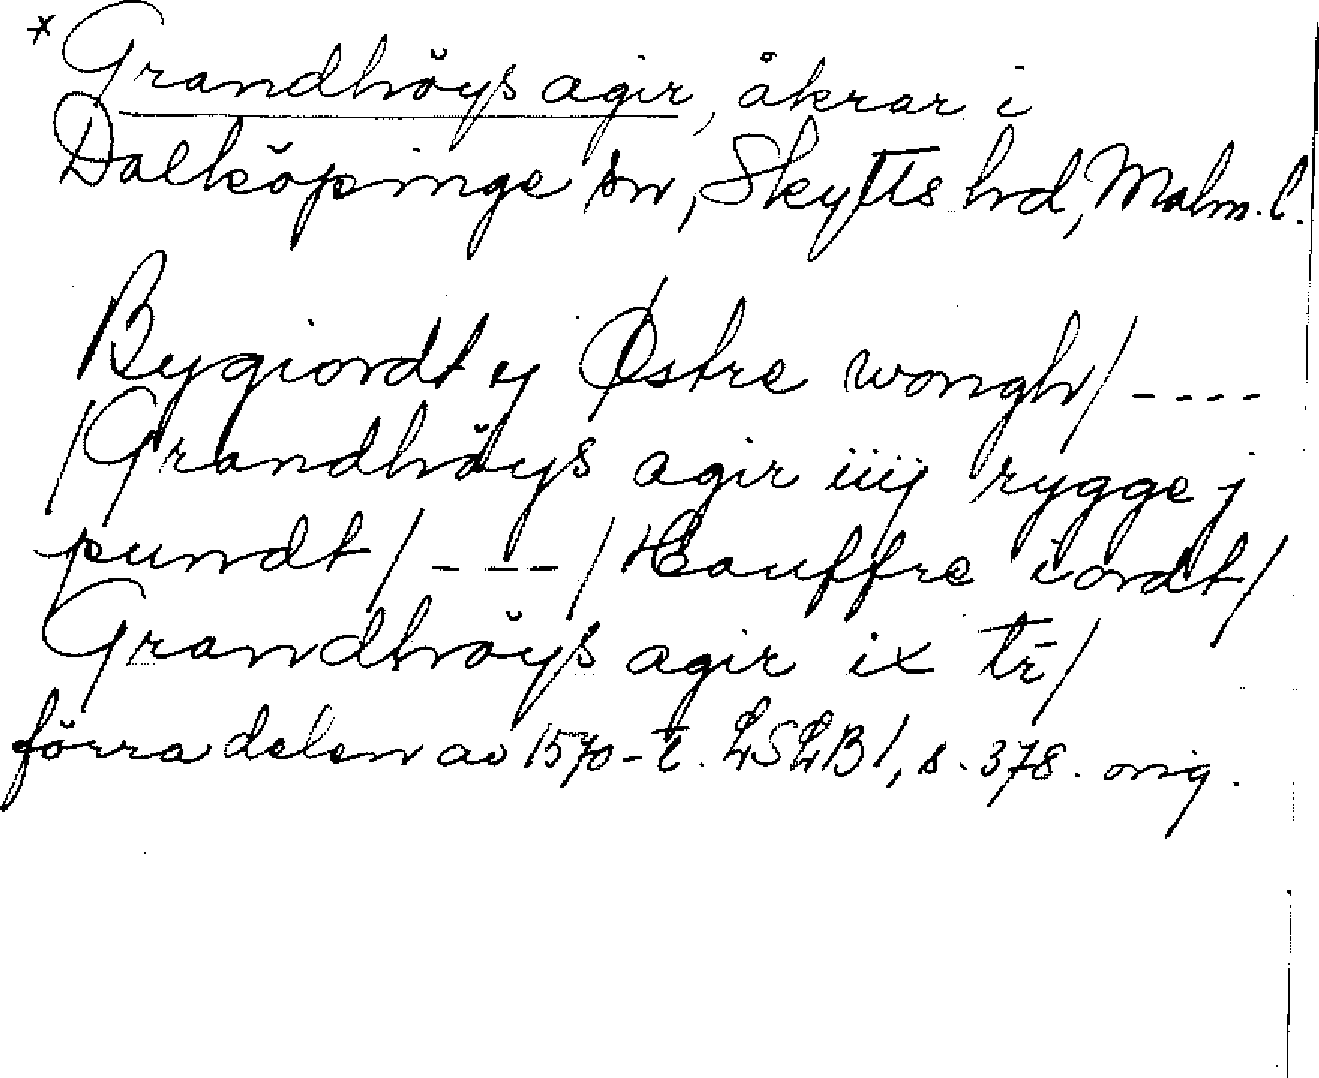 * Grandhöys agir, åkrar i
Dalköpinge sn, Skytts hd, Malm. l.
Bygiordt y Østre wongh / ----
/ Grandhöys agir iiij rygge j
pundt / --- / Hauffre iordt /
Grandhöys agir ix tr /
förra delen av 1570-t. LSLB 1, s. 378. orig.